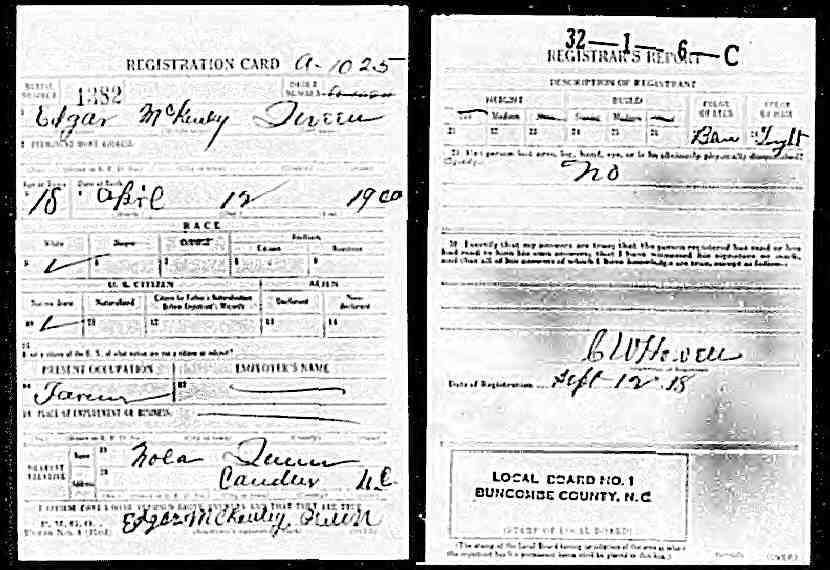 REGISTRATION CARD A-1025
SERIAL NUMBER 1382 ORDER NUMBER
Edgar McKinley Queen
PERMANENT HOME ADDRESS
Age in Years Date of Birth
18 April 12 1900
RACE
White Negro Oriental Indian
Citizen Noncitizen
5 ✓ 6 7 8 9
U. S. CITIZEN ALIEN
Native Born Naturalized Citizen by Father's Naturalization Before Registrant's Majority Declarant Non-declarant
10 ✓ 11 12 13 14
15
If not a citizen of the U. S., of what nation are you a citizen or subject?
PRESENT OCCUPATION EMPLOYER'S NAME
16 Farmer 17
18 PLACE OF EMPLOYMENT OR BUSINESS:
NEAREST RELATIVE Name 19 Nola Queen
Address 20 Candler N.C.
I AFFIRM THAT I HAVE VERIFIED ABOVE ANSWERS AND THAT THEY ARE TRUE
P. M. G. O.
Form No. 1 (Red) Edgar McKinley Queen
32—1—6—C
REGISTRAR'S REPORT
DESCRIPTION OF REGISTRANT
HEIGHT BUILD COLOR OF EYES COLOR OF HAIR
Tall Medium Slender Medium
21 22 23 24 25 26 27 28
Light
29 Has person lost arm, leg, hand, eye, or is he obviously physically disqualified?
(Specify.) No
30 I certify that my answers are true; that the person registered has read or has
had read to him his own answers; that I have witnessed his signature or mark,
and that all of his answers of which I have knowledge are true, except as follows:
Date of Registration Sept 12 18
LOCAL BOARD NO. 1
BUNCOMBE COUNTY, N.C.
(STAMP OF LOCAL BOARD)
(The stamp of the Local Board having jurisdiction of the area in which
the registrant has his permanent home shall be placed in this box.)
(OVER)